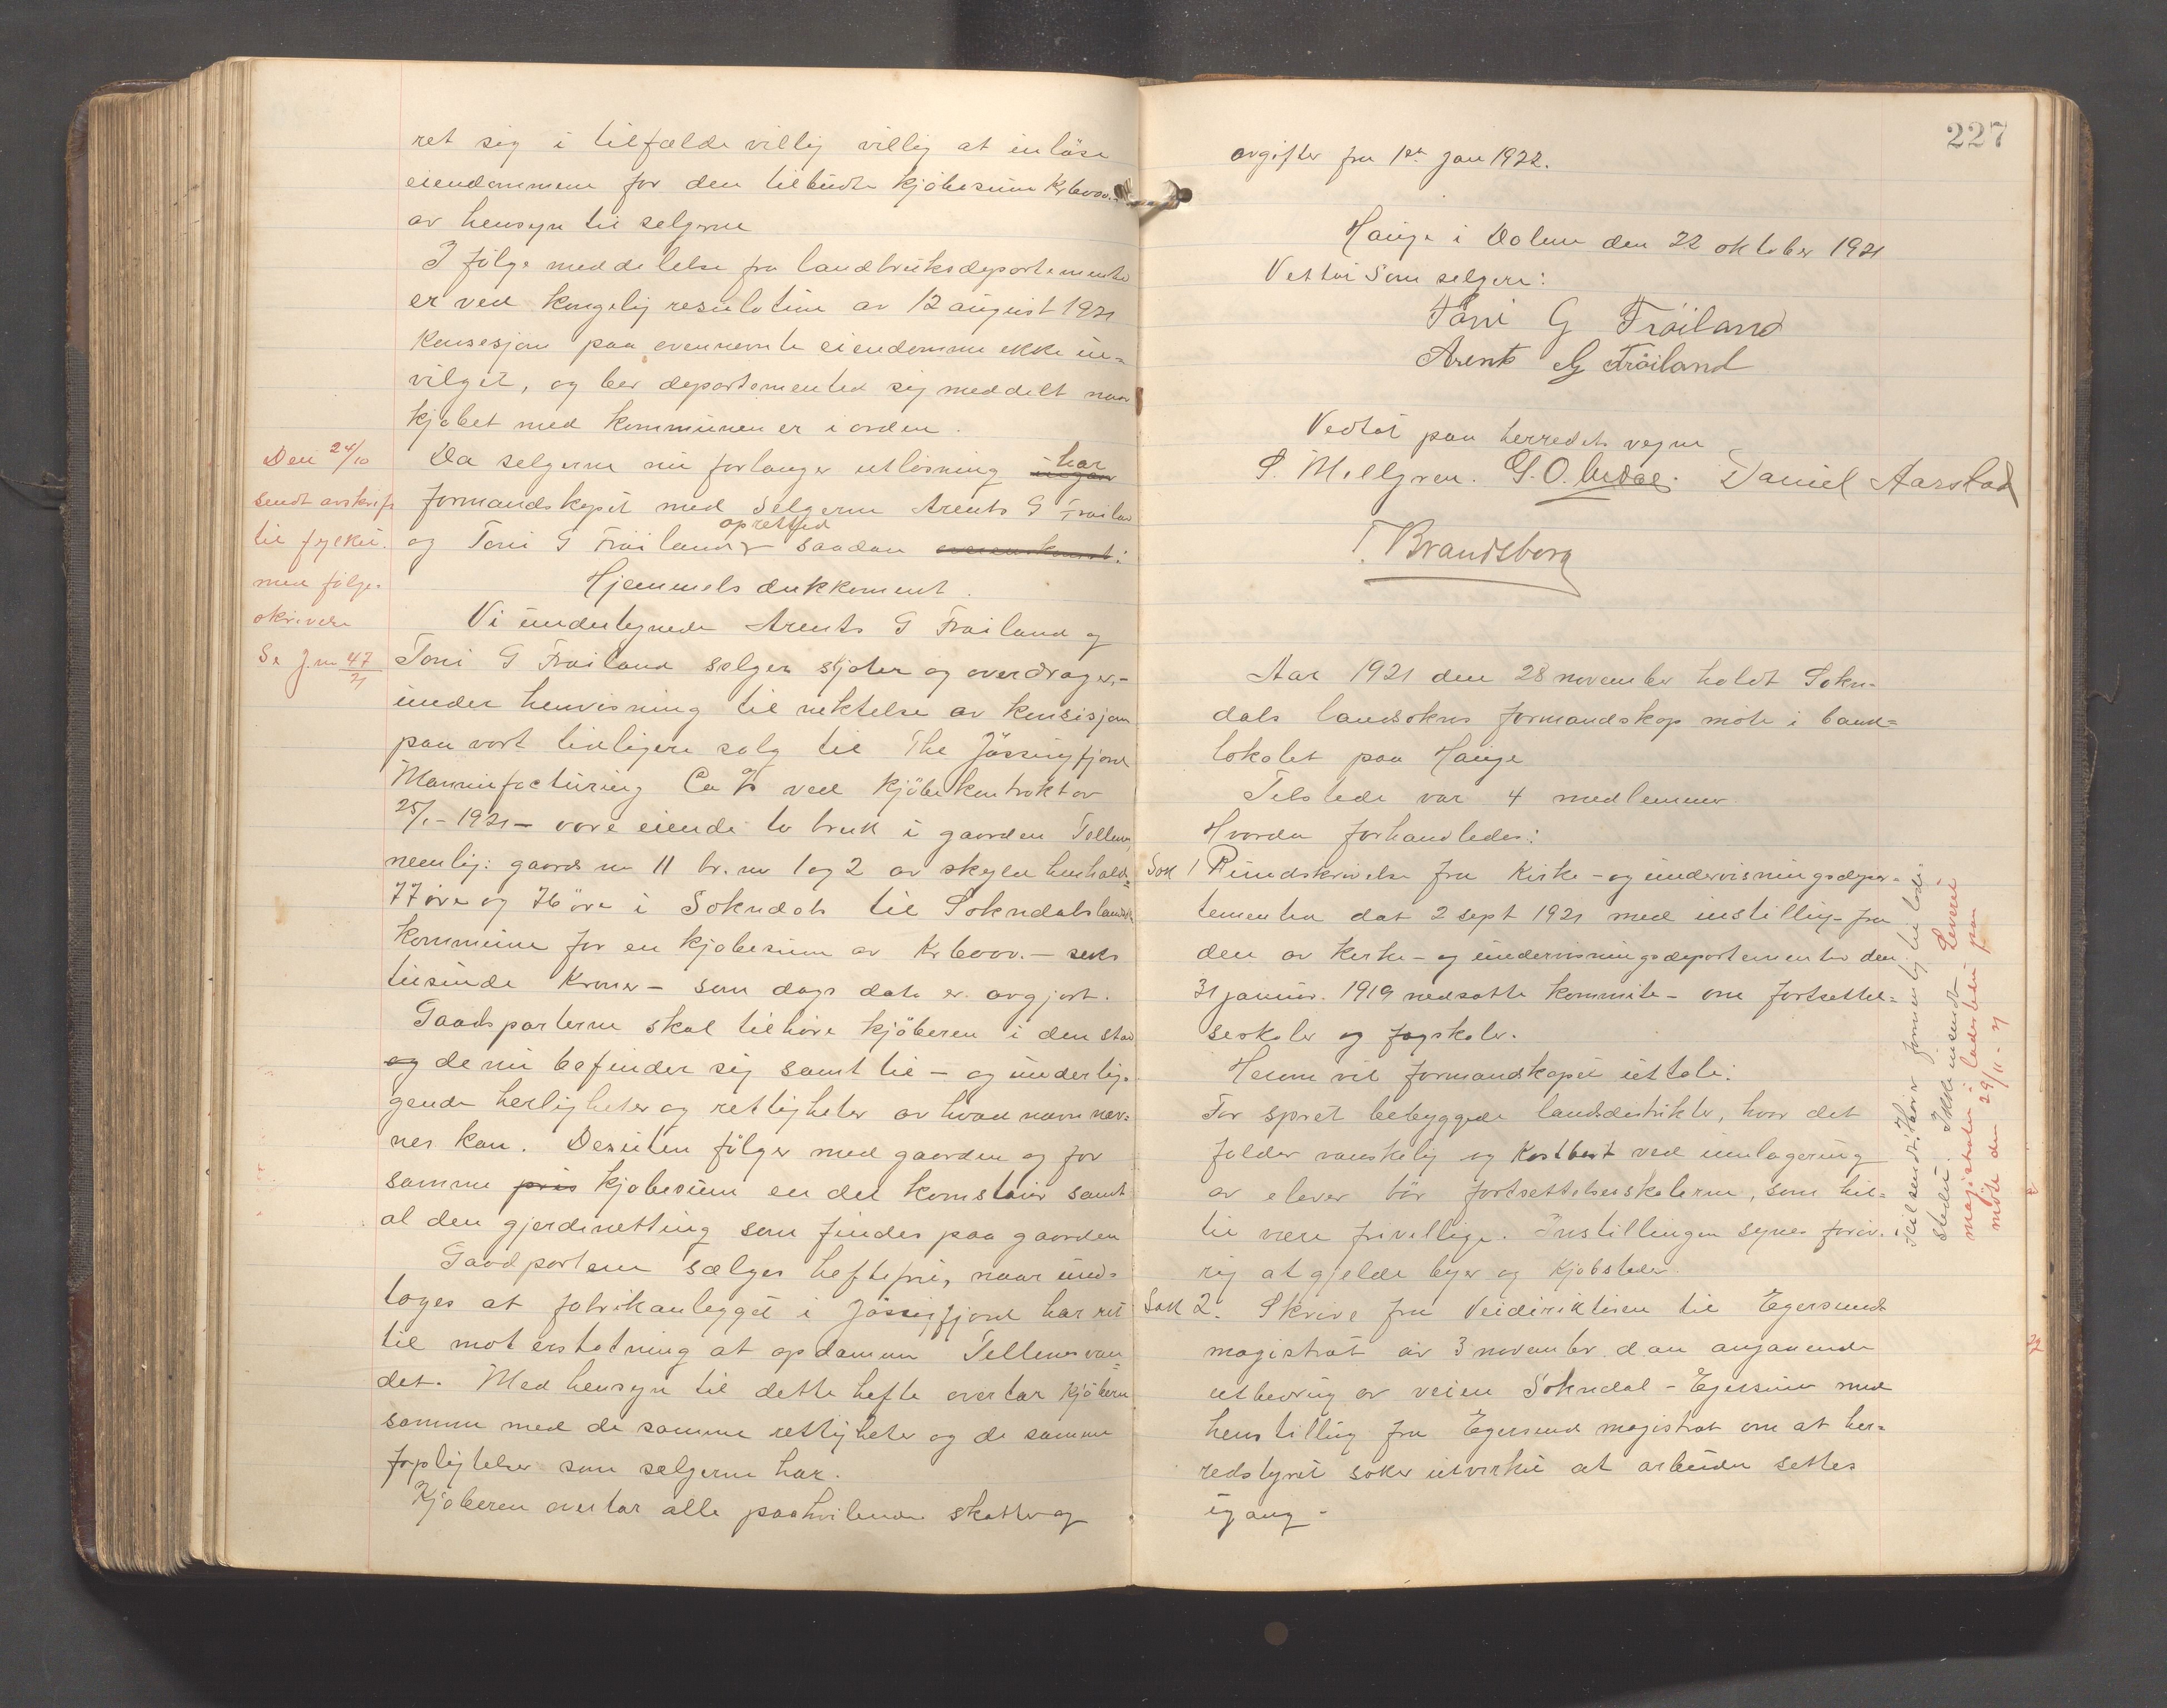 ret sig i tilfælde villig villig at inløse
eiendommene for den tilbudte kjøbesum Kr 6000.-
av hensyn til selgerne
I følge meddelelse fra landbruksdepartementet
er ved kongelig resulotion av 12 august 1921
konsesjon paa ovennevnte eiendomme ikke in=
vilget, og ber departementet sig meddelt naar
kjøbet med kommunen er i orden.
Da selgerne nu forlanger utløsning har
formandskapet med Selgerne Arents G Frøiland
oprettet
og Toni G Frøiland saadan overenskomst:
Hjemmels dokkoment.
Vi undertegnede Arents G Frøiland og
Toni G Frøiland selger skjøter og overdrager,-
under henvisning til nektelse av konsisjon
paa vort tidligere salg til The Jøssingfjord
Mannufacturing Co A/S ved kjøbekontrakt av
25/1-1921- vore eiende to bruk i gaarden Tellenes
nemlig: gaards no 11 br. no 1 og 2 av skyld henholds=
77 øre og 76 øre i Sokndals til Sokndals lands
kommune for en kjøbesum av Kr 6000.- seks
tusinde Kroner - som dags dato er avgjort.
Gaadsparterne skal tilhøre kjøberen i den stand
og de nu befinder sig samt til - og underlig=
gende herligheter og rettigheter av hvad navn nev=
nes kan. Desuten følger med gaarden og for
samme pris kjøbesum en del komstaur samt
al den gjerdenetting som findes paa gaarden
Gaadparterne sælges heftefri, naar und=
tages at fabrikanlegget i Jøssingfjord har ret
til mot erstatning at opdamme Tellenesvan=
det. Med hensyn til dette hefte overtar kjøberen
samme med de samme rettigheter og de samme
forpligtelser som selgerne har.
Kjøberen overtar alle paahvilende skatter og
Den 24/10
sendt avskrift
til fylket.
med følge-
skrivelse
Se J.nr 47/21
227
avgifter fra 1st jan 1922.
Hauge i Dalene den 22 oktober 1921
Vettat Som selgere:
Toni G Frøiland
Arents G Frøiland
Vedtat paa herredets vegne
S. Mellgren. G.O. Daniel Aarstad
T. Brandsberg
Aar 1921 den 28 november holdt Sokn-
dals landsokns formandskap møte i bank=
lokalet paa Hauge
Tilstede var 4 medlemmer
Hvorda forhandledes:
Sak 1 Rundskrivelse fra Kirke - og undervisningsdepar=
tementet dat 2 sept 1921 med instilling fra
den av Kirke - og undervisningsdepartementet den
31 januar. 1919 nedsatte kommite - om fortsettel=
seskoler og fagskoler.
Herom vil formandskapet uttale:
For spret bebyggede landsdistrikter, hvor det
falder vanskelig og kostbart ved innlogering
av elever bør fortsettelsesskolerne, som hit=
til være frivillige. Instillingen synes forøv=
rig at gjelde byer og Kjøbsteder.
Sak 2. Skrive fra Veidirektøren til Egersunds
magistrat av 3 november d.aa angaaende
utbedring av veien Sokndal - Egersund med
henstilling fra Egersund magistrat om at her=
redstyret søker utvirket at arbeidet settes
igang -
stedet. Ikke insendt Levert
magistraten i lader
møte den 29/11-21